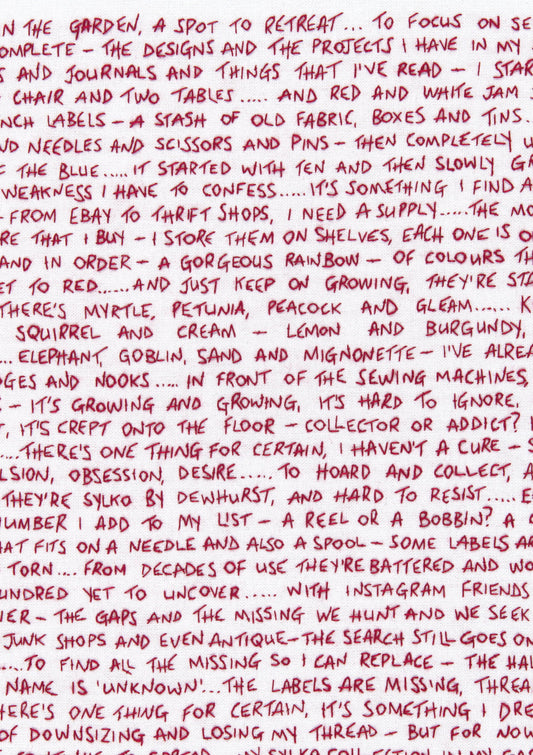 N THE GARDEN, A SPOT TO RETREAT... TO FOCUS ON SE
OMPLETE – THE DESIGNS AND THE PROJECTS I HAVE IN MY
S AND JOURNALS AND THINGS THAT I'VE READ – I STAR
CHAIR AND TWO TABLES..... AND RED AND WHITE JAM
NCH LABELS – A STASH OF OLD FABRIC, BOXES AND TINS..
ND NEEDLES AND SCISSORS AND PINS – THEN COMPLETELY U
F THE BLUE.....IT STARTED WITH TEN AND THEN SLOWLY GR
WEAKNESS I HAVE TO CONFESS.....IT'S SOMETHING I FIND A
– FROM EBAY TO THRIFT SHOPS, I NEED A SUPPLY.....THE MO
RE THAT I BUY – I STORE THEM ON SHELVES, EACH ONE IS O
AND IN ORDER – A GORGEOUS RAINBOW – OF COLOURS TH
ET TO RED......AND JUST KEEP ON GROWING, THEY'RE STA
THERE'S MYRTLE, PETUNIA, PEACOCK AND GLEAM...... K
SQUIRREL AND CREAM – LEMON AND BURGUNDY,
... ELEPHANT, GOBLIN, SAND AND MIGNONETTE – I'VE ALREA
DGES AND NOOKS ..... IN FRONT OF THE SEWING MACHINES,
– IT'S GROWING AND GROWING, IT'S HARD TO IGNORE,
T, IT'S CREPT ONTO THE FLOOR – COLLECTOR OR ADDICT? I
....THERE'S ONE THING FOR CERTAIN, I HAVEN'T A CURE – S
LSION, OBSESSION, DESIRE......TO HOARD AND COLLECT, A
THEY'RE SYLKO BY DEWHURST, AND HARD TO RESIST..... E
NUMBER I ADD TO MY LIST – A REEL OR A BOBBIN? A
HAT FITS ON A NEEDLE AND ALSO A SPOOL – SOME LABELS AR
TORN.... FROM DECADES OF USE THEY'RE BATTERED AND WO
UNDRED YET TO UNCOVER...... WITH INSTAGRAM FRIENDS
HER – THE GAPS AND THE MISSING WE HUNT AND WE SEEK
JUNK SHOPS AND EVEN ANTIQUE – THE SEARCH STILL GOES ON
.....TO FIND ALL THE MISSING SO I CAN REPLACE – THE HAL
NAME IS 'UNKNOWN'...THE LABELS ARE MISSING, THREA
HERE'S ONE THING FOR CERTAIN, IT'S SOMETHING I DRE
OF DOWNSIZING AND LOSING MY THREAD – BUT FOR NOW
TO SPREAD – MY SYLKO COLLECTION